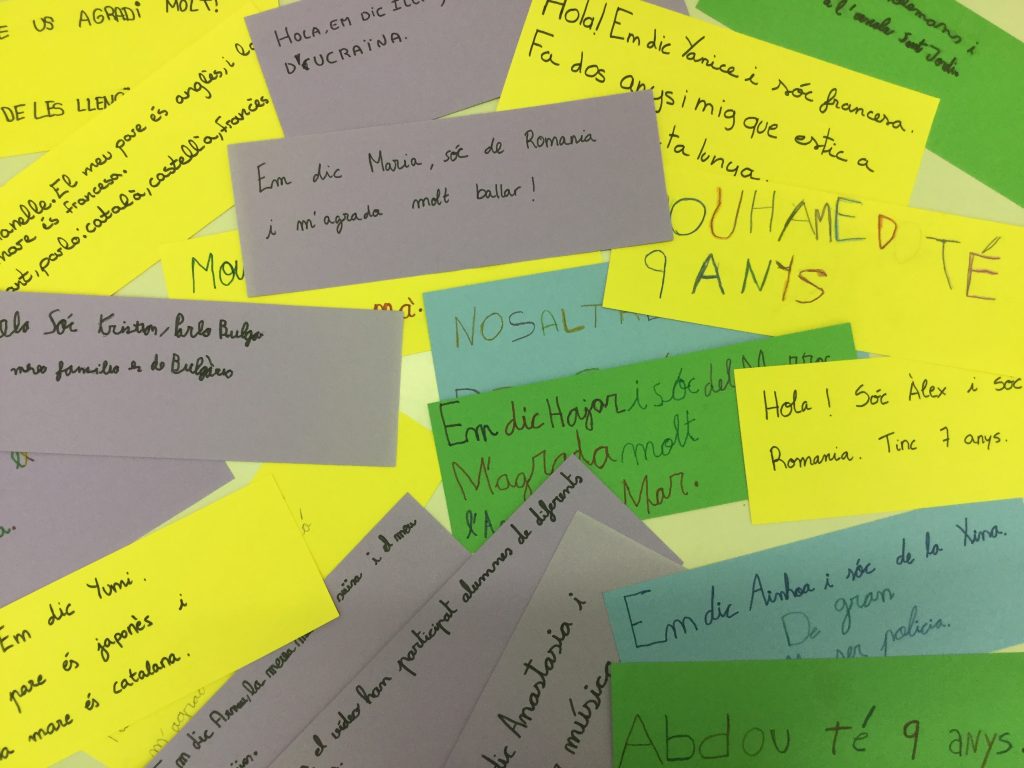 US AGRADI MOLT!
DE LES
El meu pare és anglès, i la
mare és francesa.
parlo: català, castellà, francès
HOLA, EM DIC
D'UCRAÏNA.
Hola! Em dic Yanice i sóc francesa.
Fa dos anys i mig que estic a
i
a l'escola Sant Jordi
Em dic Maria, sóc de Romania
i m'agrada molt ballar!
OUHAMED TÉ
9 ANYS
MOU
mà.
NOSALT
Sóc Kristian, Parlo
families es de
Em dic Hajar i sóc del
M'agrada molt
Mar.
Hola! Sóc Àlex i sóc
Romania. Tinc 7 anys.
Em dic Yumi.
pare és japonès i
a mare és catalana.
i el meu
Em dic
m'agrad
el vídeo han participat alumnes de diferents
dic Anastasia i
música
Em dic Ainhoa i sóc de la Xina.
De gran
ser policia.
Abdou té 9 anys.